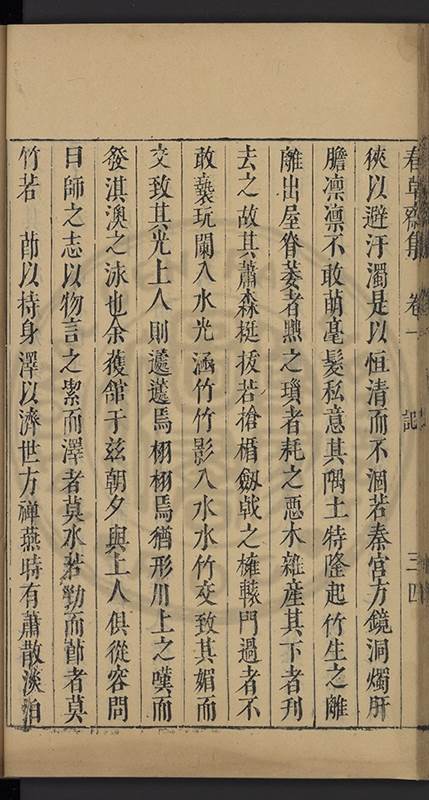 春草齋集 卷一 記 三四
狹以避汙濁是以恒清而不涸若秦宫方鏡洞燭肝
膽凛凛不敢萌毫髮私意其隅土特隆起竹生之離
離出屋脊萎者㸃之瑣者耗之惡木雜産其下者刋
去之故其蕭森挺拔若搶楯劔戟之擁轅門過者不
敢䙝玩闌入水光涵竹竹影入水水竹交致其媚而
交致其光上人則蘧蘧焉栩栩焉猶形川上之嘆而
發淇澳之泳也余獲舘于兹朝夕與上人俱從容問
曰師之志以物言之潔而澤者莫水若勁而莭者莫
竹若 莭以持身澤以濟世方禪燕時有蕭散淡泊